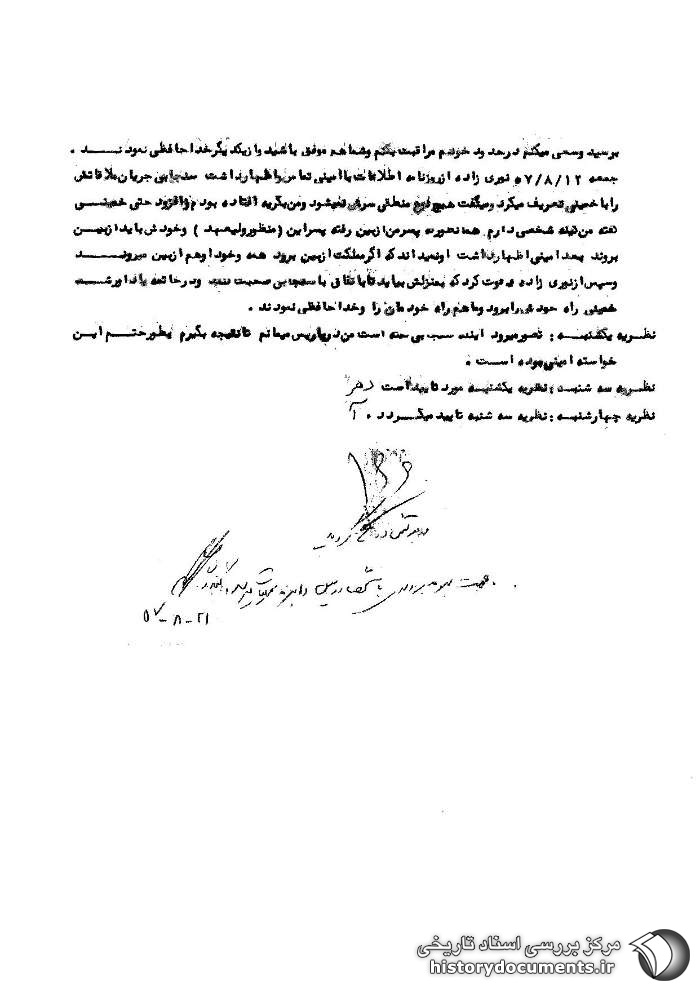 برسید وسعی میکنم درحد ود خودم مراقبت بکنم وشماهم موفق باشید وازیکدیگرخداحافظی نمودنـــد .
جمعه ۵۷/۸/۱۲ نوری زاده ازروزنامه اطلاعات باامینی تماس واظهارداشت سنجابی جریان ملاقاتش
راباخمینی تعریف میکرد ومیگفت هیچ نوع منطقی سرش نمیشود ومن بگریه افتاده بودم وافزود حتی خمینــی
گفته من کینه شخصی دارم همانطوریه پسرمن ازبین رفته پسراین (منظورولیعهد ) وخودش بایدازبیــن
بروند بعدامینی اظهارداشت اونمیداند که اگرمملکت ازبین برود همه وخوداوهم ازبین میرونـــد
وسپس ازنوری زاده دعوت کردکه بمنزلش بیاید تاباتفاق باسنجابی صحبت کنند ودرخاتمه یادآورشـــد
خمینی راه خودش رابرود وماهم راه خودمان را وخداحافظی نمودند .
نظریه یکشنبـــه : تصورمیرود اینکه سنجابی گفته است من درپاریس میمانم تانتیجه بگیرم بطورحتــم ایــن
خواسته امینی بوده اســت .
نظریه سه شنبـه : نظریه یکشنبـه مورد تاییداست
نظریه چهارشنبـه : نظریه سه شنبه تایید میگـــردد . آ
۵۷-۸-۲۱
مرکز بررسی اسناد تاریخی
historydocuments.ir